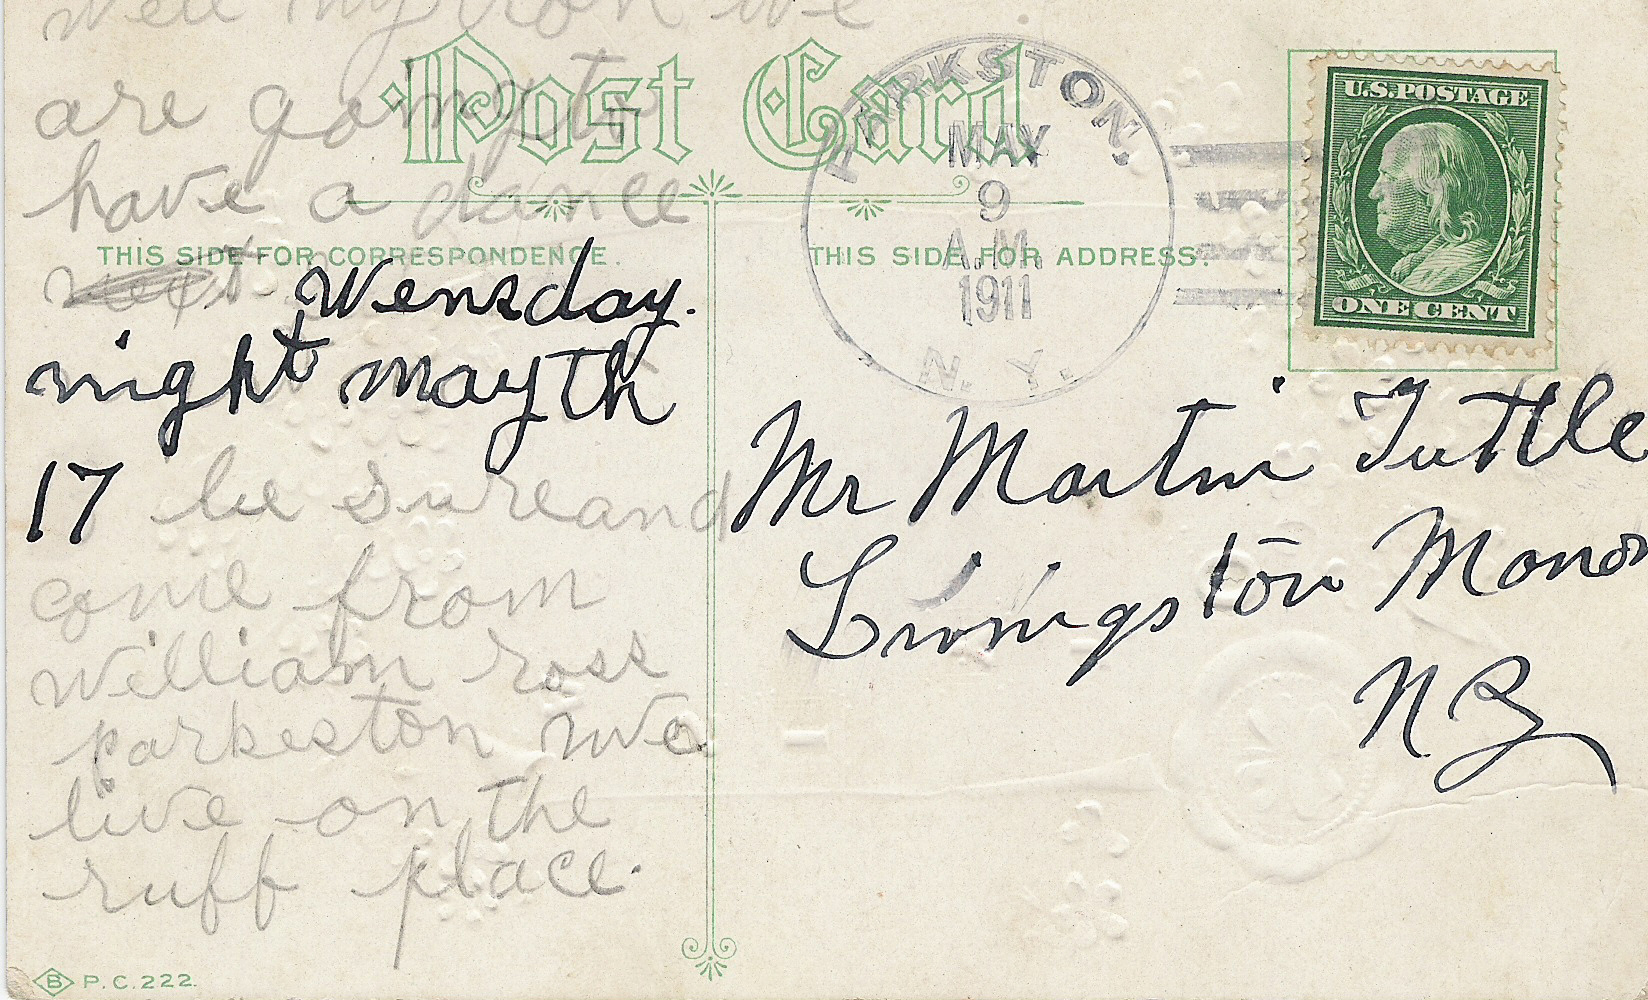 well myron we
are going to
have a dance
next Wensday.
night may th
17 be sure and
come from
william ross
parkeston we
live on the
ruff place.
Post Card
THIS SIDE FOR CORRESPONDENCE.
THIS SIDE FOR ADDRESS.
PARKSTON,
MAY
9
A.M.
1911
N. Y.
U.S. POSTAGE
ONE CENT
Mr Martin Tuttle
Livingston Manor
N Y
B P.C. 222.